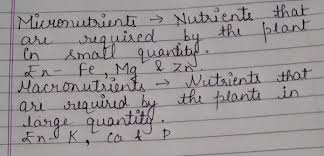 Micronutrients → Nutrients that
are required by the plant
in small quantity.
Ex- Fe, Mg & Zn.
Macronutrients → Nutrients that
are required by the plants in
large quantity.
Ex- K, Ca & P